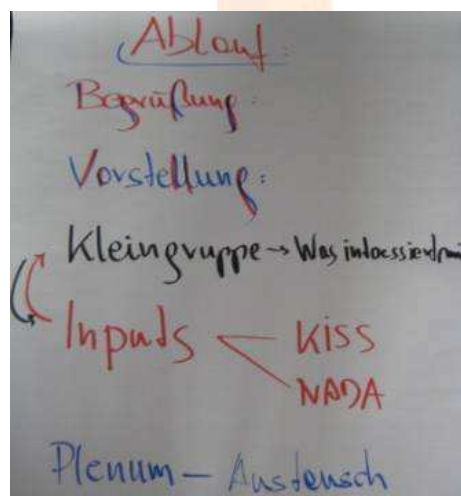 Ablauf:
Begrüßung:
Vorstellung:
Kleingruppe → Was interessiert mi
Inputs
KISS
NADA
Plenum – Austausch